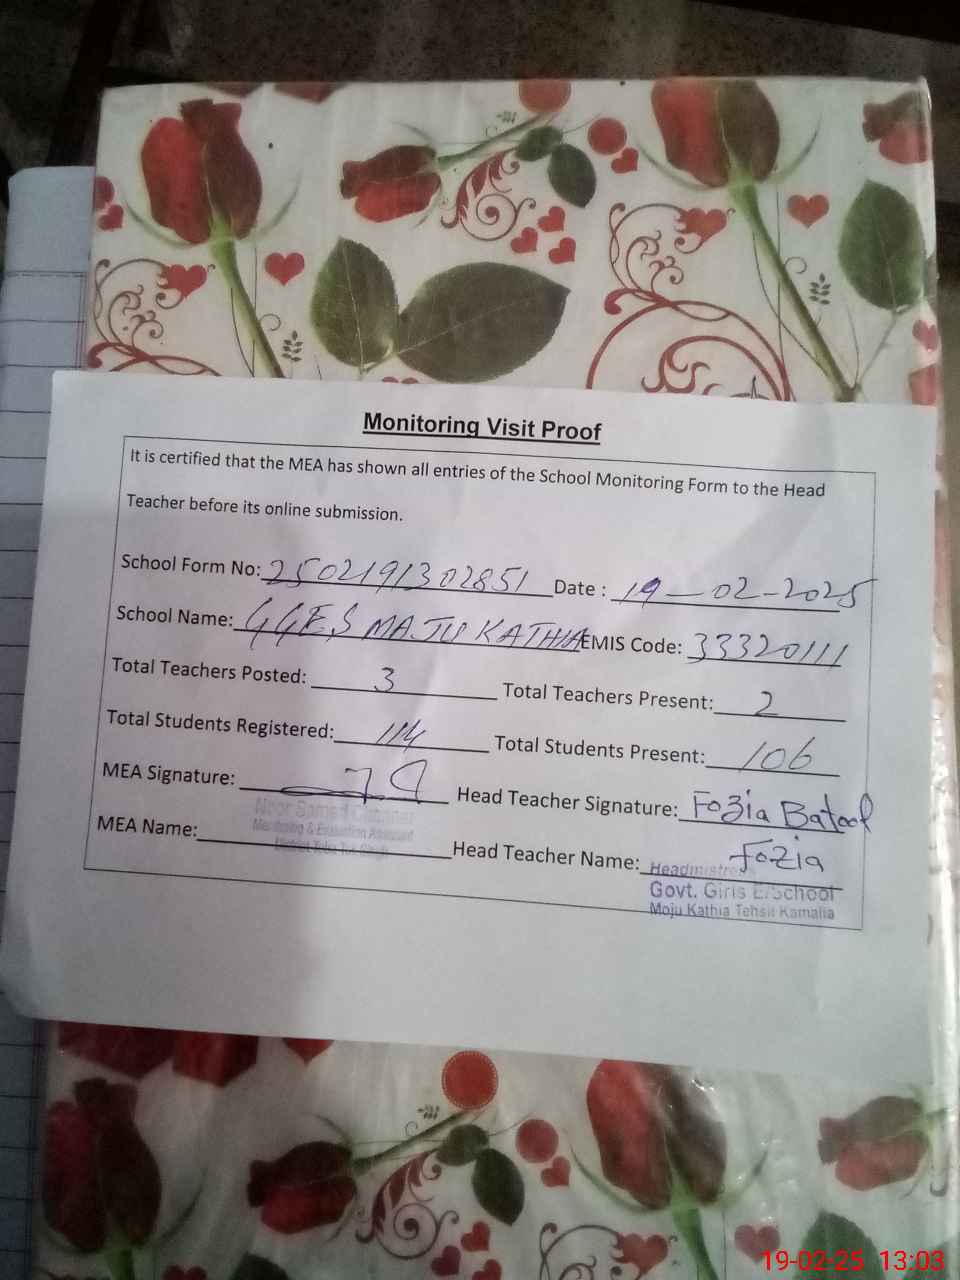 Monitoring Visit Proof
It is certified that the MEA has shown all entries of the School Monitoring Form to the Head
Teacher before its online submission.
School Form No: 2502191302851 Date : 19-02-2025
School Name: GGES MAJU KATHIA EMIS Code: 33320111
Total Teachers Posted: 3 Total Teachers Present: 2
Total Students Registered: 114 Total Students Present: 106
MEA Signature: Head Teacher Signature: Fozia Batool
Monitoring & Evaluation Assistant
MEA Name: Head Teacher Name: Fozia
Headmistress
Govt. Girls E/School
Moju Kathia Tehsil Kamalia
19-02-25 13:03